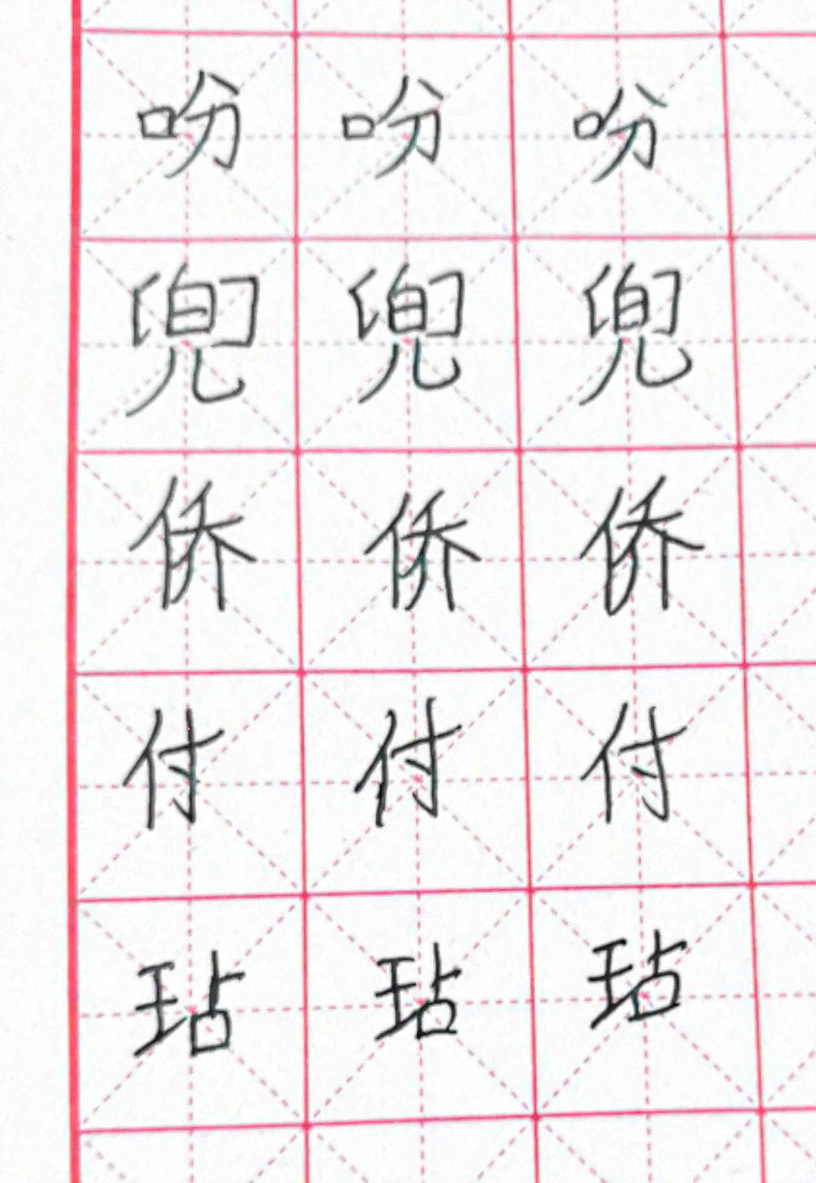 吩吩吩
兜兜兜
侨侨侨
付付付
玷玷玷